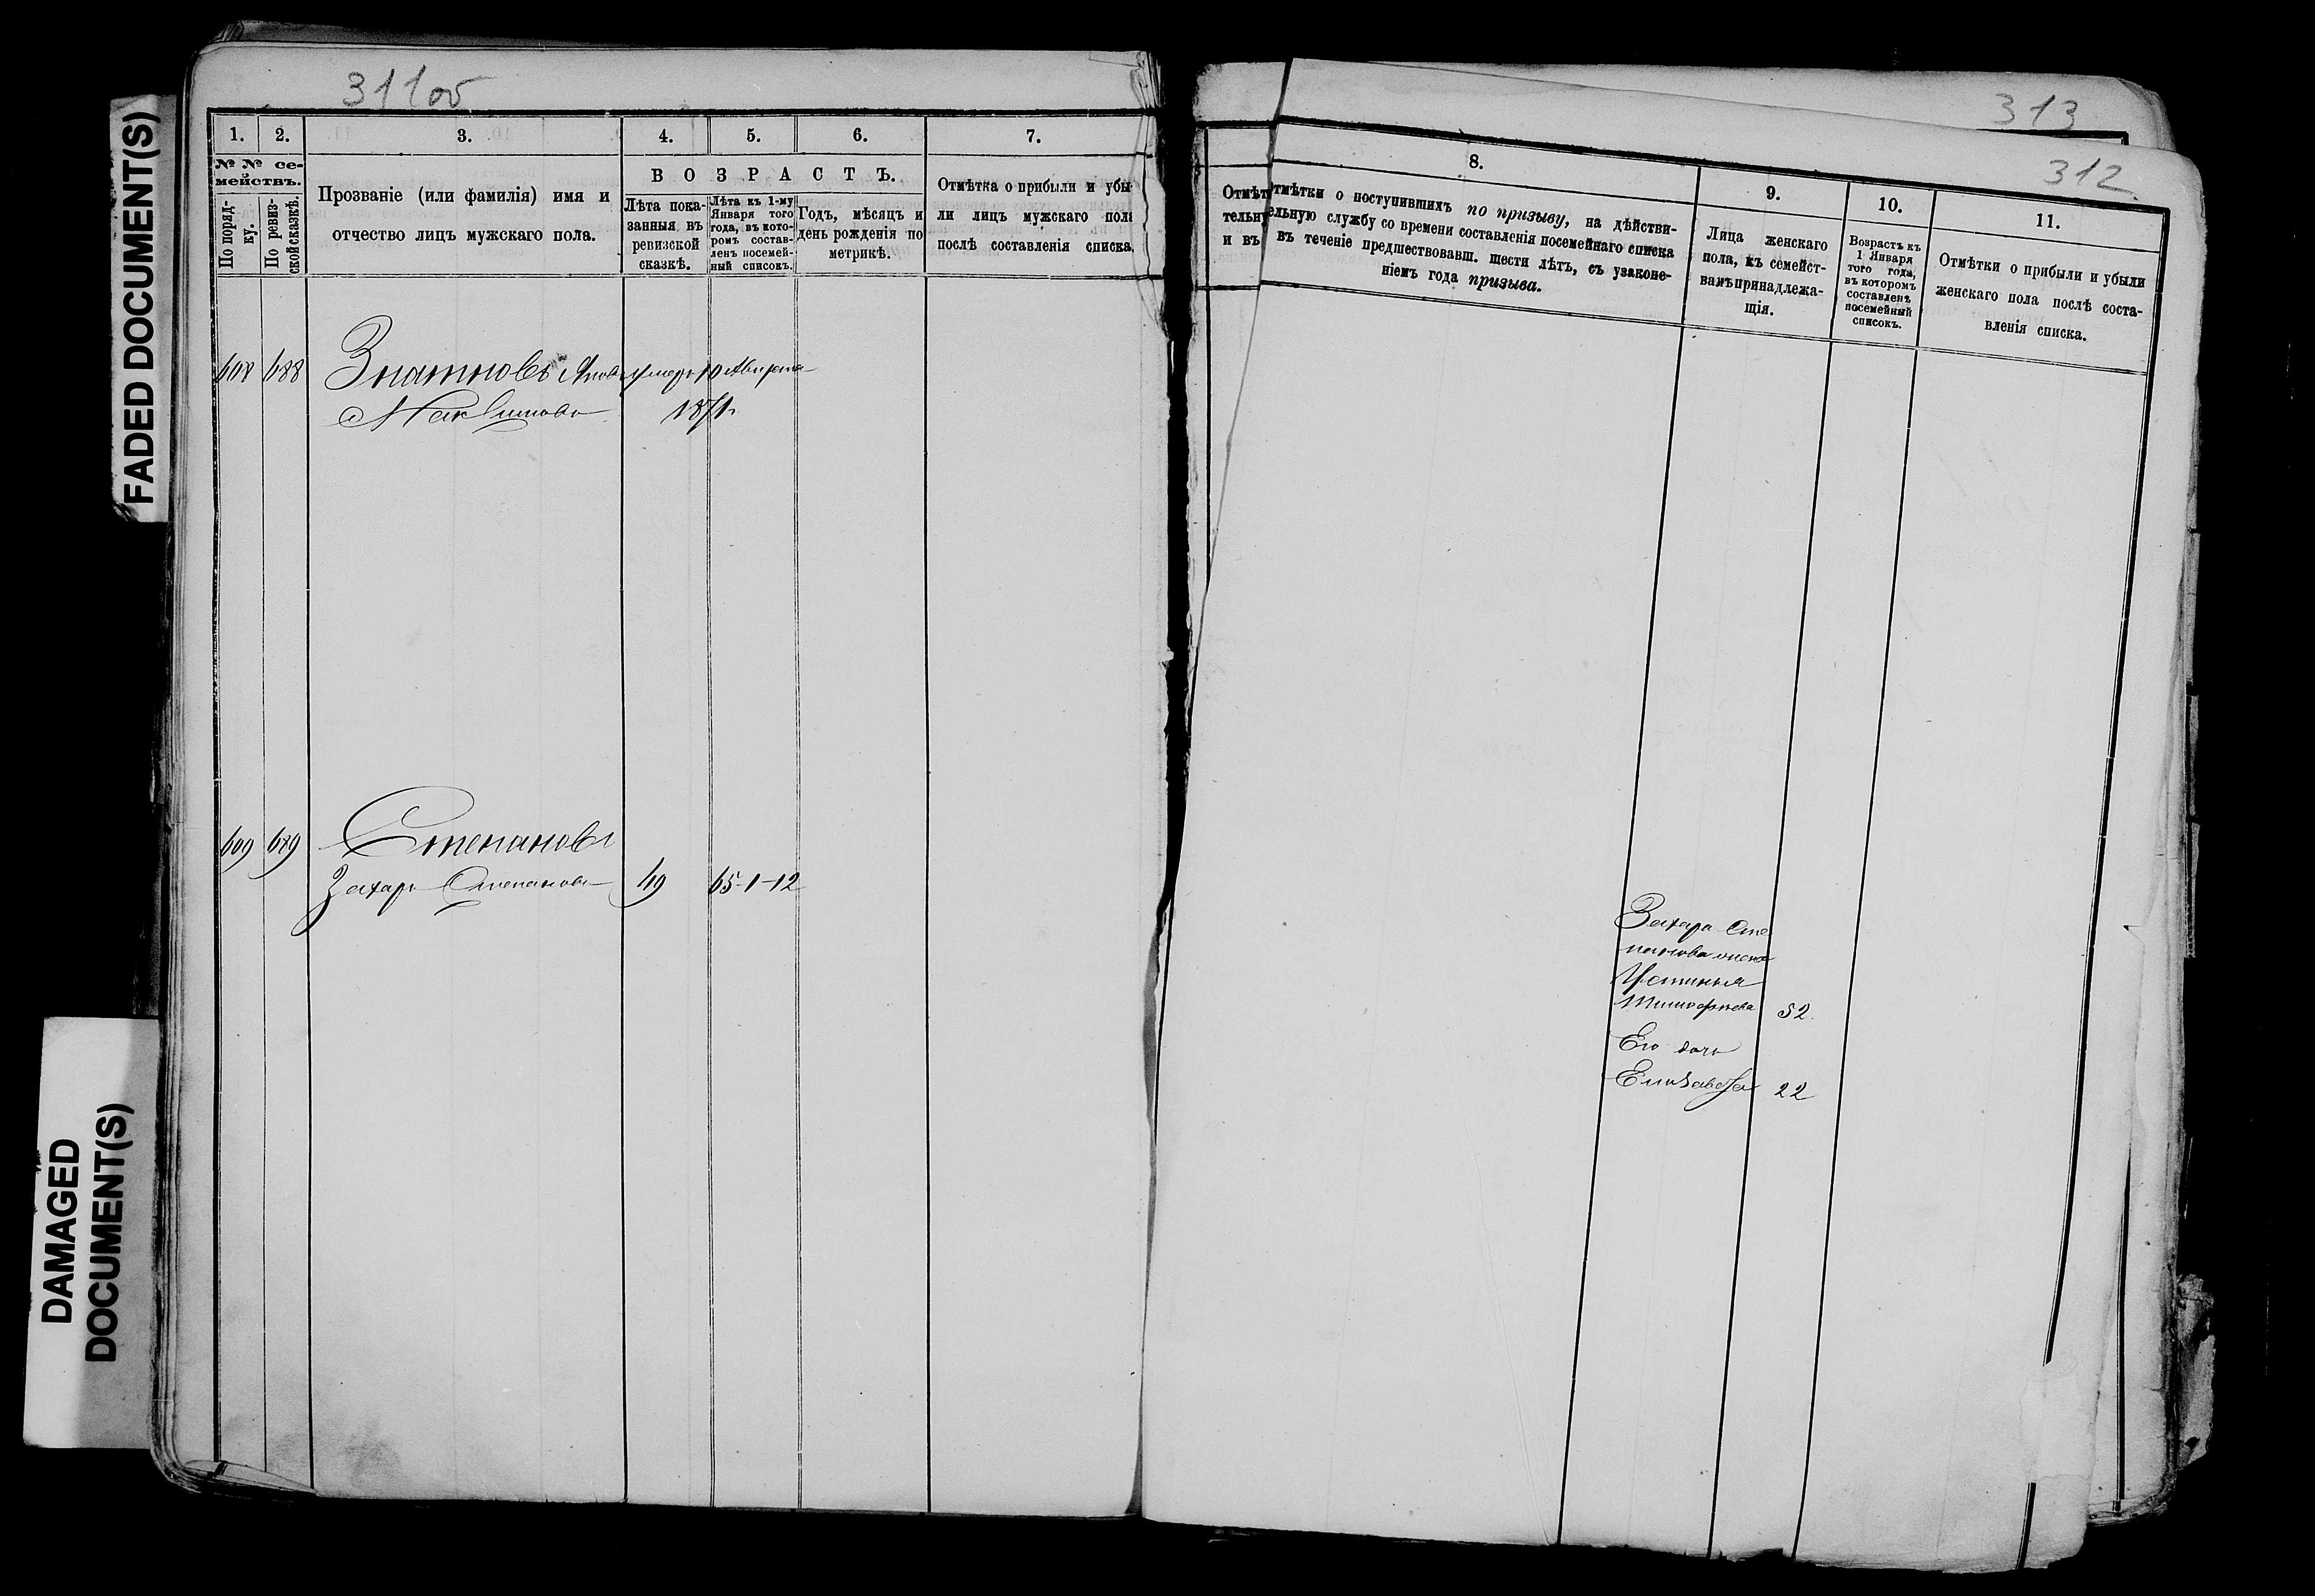 FADED DOCUMENT(S)
DAMAGED
DOCUMENT(S)
311об
1. 2. 3. 4. 5. 6. 7.
№ № се-
мействъ.
По поряд-
ку.
По ревиз-
ской сказкѣ.
Прозваніе (или фамилія) имя и
отчество лицъ мужскаго пола.
ВОЗРАСТЪ.
Лѣта пока-
занныя въ
ревизской
сказкѣ.
Лѣта къ 1-му
Января того
года, въ кото-
ромъ состав-
ленъ посемей-
ный списокъ.
Годъ, мѣсяцъ и
день рожденія по
метрикѣ.
Отмѣтка о прибыли и убы
ли лицъ мужскаго пола
послѣ составленія списка.
608 688 Знатновъ умеръ 10 Августа
Максимовъ 1871.
609 689 Степановъ
Захаръ Степановъ 49 65-1-12
313
312
8. 9. 10. 11.
Отмѣт
тельну
и въ
тмѣтки о поступившихъ по призыву, на дѣйстви-
ельную службу со времени составленія посемейнаго списка
въ теченіе предшествовавш. шести лѣтъ, съ узаконе-
ніемъ года призыва.
Лица женскаго
пола, къ семейст-
вамъ принадлежа-
щія.
Возрастъ къ
1 Января
того года,
въ которомъ
составленъ
посемейный
списокъ.
Отмѣтки о прибыли и убыли
женскаго пола послѣ соста-
вленія списка.
Захара Сте
панова жена
Устинья
Тимофеева 52.
Его дочь
Елизавета 22